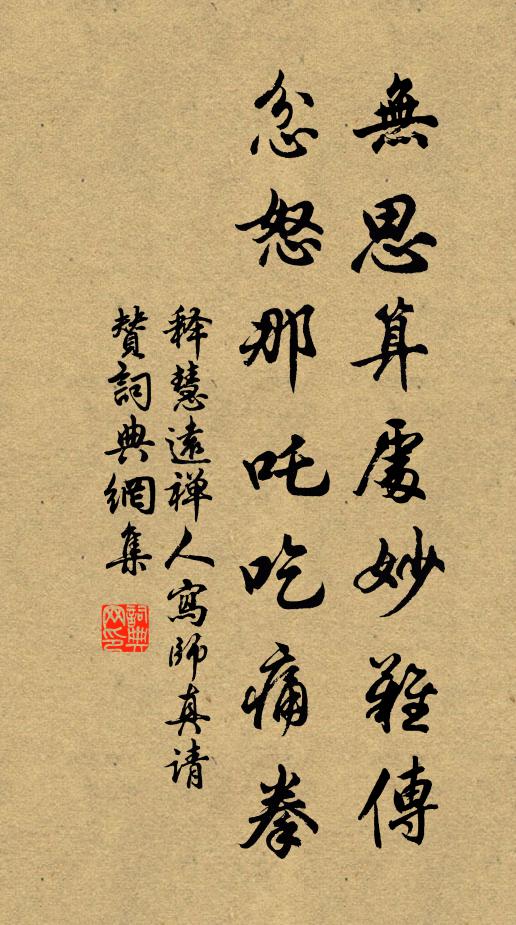 無思算處妙難傳
忿怒那吒吃痛拳
释慧遠禅人寫師真请
赞詞典網集
詞典网印